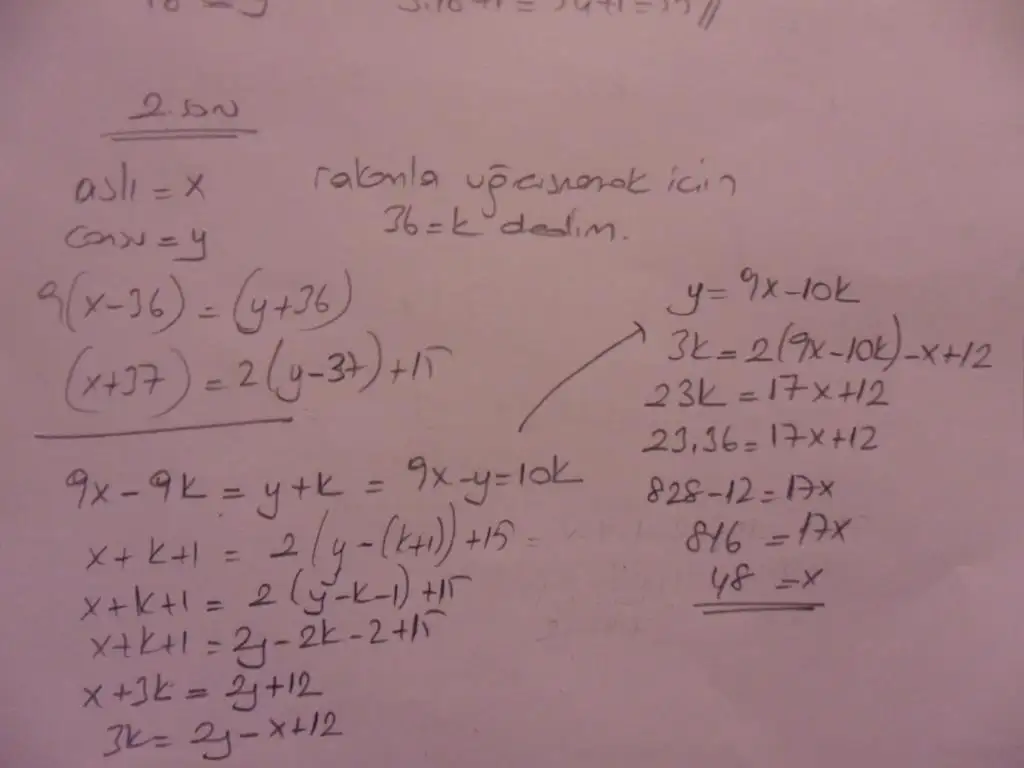 3.18+1=54+1=55//
2. soru
aslı = x
cansu = y
rakamla uğraşmamak için
36=k dedim.
9(x-36) = (y+36)
(x+37) = 2(y-37)+15
9x-9k = y+k = 9x-y=10k
x+k+1 = 2(y-(k+1))+15
x+k+1 = 2(y-k-1)+15
x+k+1 = 2y-2k-2+15
x+3k = 2y+12
3k = 2y-x+12
y= 9x-10k
3k=2(9x-10k)-x+12
23k=17x+12
23.36=17x+12
828-12=17x
816=17x
48=x